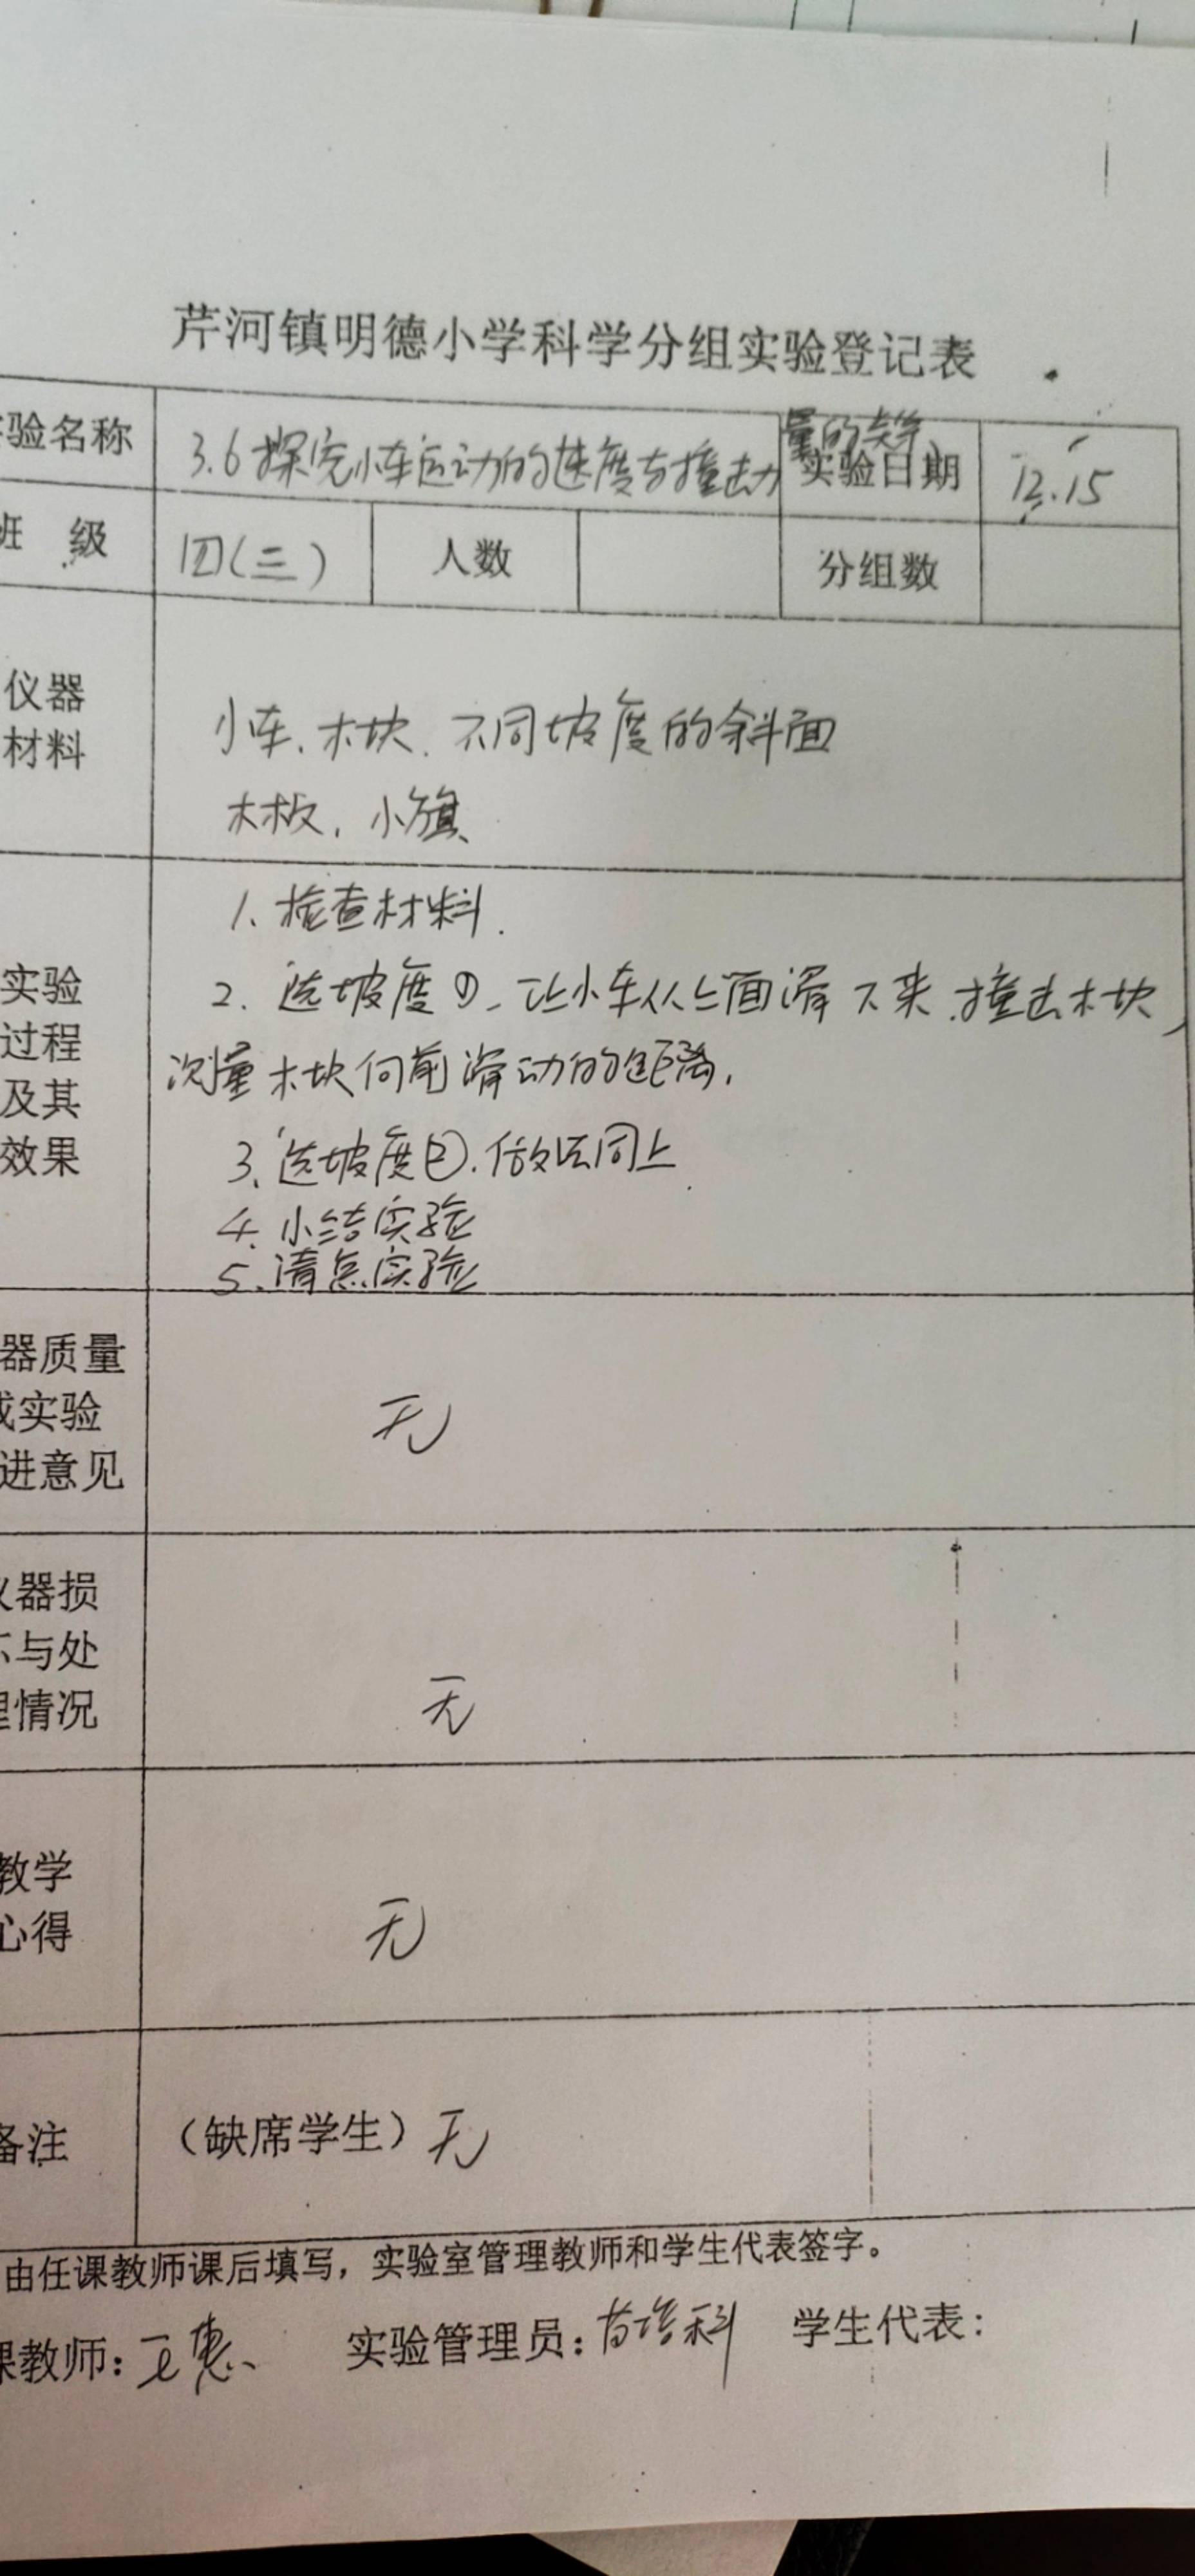 芹河镇明德小学科学分组实验登记表
验名称 3.6探究小车运动的速度与撞击力 量的关 实验日期 12.15
班 级 四(三) 人数 分组数
仪器 小车、木块、不同坡度的斜面
材料
木板、小旗、
1、检查材料.
实验 2、选坡度①、让小车从上面滑下来、撞击木块,
过程 测量木块向前滑动的距离.
及其
效果 3、选坡度②、做法同上
4、小结实验
5、清点实验
器质量
实验 无
进意见
器损
与处
情况 无
教学
心得 无
备注 (缺席学生)无
由任课教师课后填写,实验室管理教师和学生代表签字。
课教师: 王惠 实验管理员: 科 学生代表: